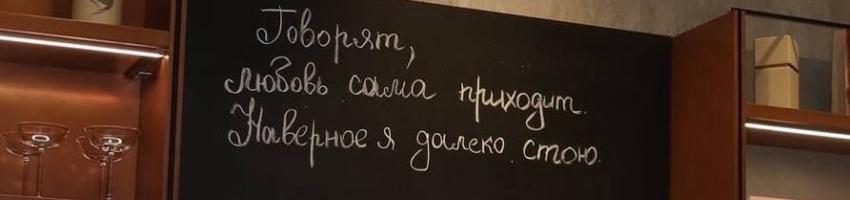 Говорят,
любовь сама приходит.
Наверное я далеко стою.